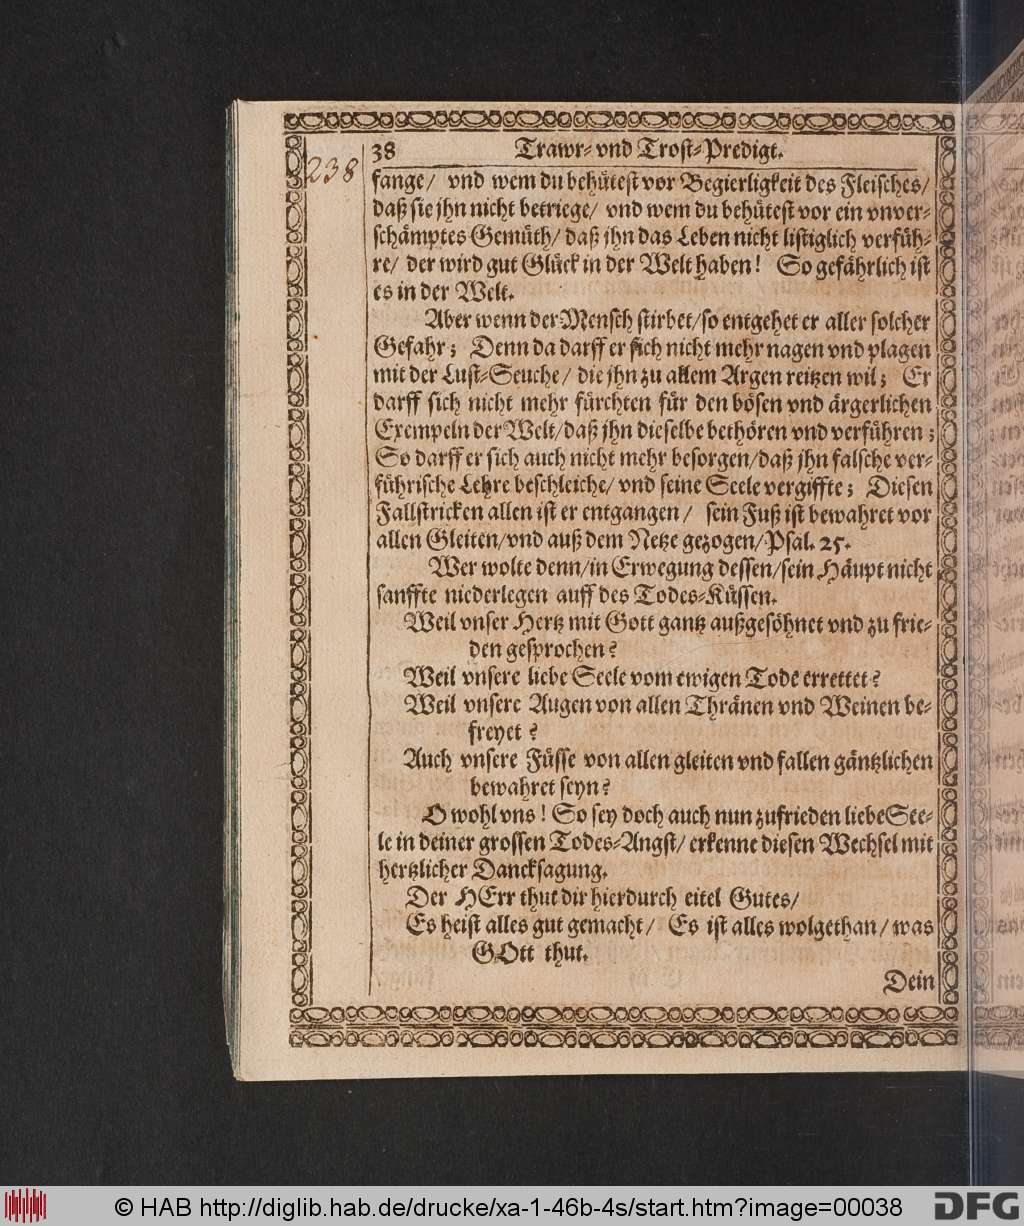 238
38 Trawr- vnd Trost-Predigt.
fange/ vnd wem du behütest vor Begierligkeit des Fleisches/
daß sie jhn nicht betriege/ vnd wem du behütest vor ein vnver-
schämptes Gemüth/ daß jhn das Leben nicht listiglich verfüh-
re/ der wird gut Glück in der Welt haben! So gefährlich ist
es in der Welt.
Aber wenn der Mensch stirbet/ so entgehet er aller solcher
Gefahr; Denn da darff er sich nicht mehr nagen vnd plagen
mit der Lust-Seuche/ die jhn zu allem Argen reitzen wil; Er
darff sich nicht mehr fürchten für den bösen vnd ärgerlichen
Exempeln der Welt/ daß jhn dieselbe bethören vnd verführen;
So darff er sich auch nicht mehr besorgen/ daß jhn falsche ver-
führische Lehre beschleiche/ vnd seine Seele vergiffte; Diesen
Fallstricken allen ist er entgangen/ sein Fuß ist bewahret vor
allen Gleiten/ vnd auß dem Netze gezogen/ Psal. 25.
Wer wolte denn/ in Erwegung dessen/ sein Häupt nicht
sanffte niederlegen auff des Todes-Küssen.
Weil vnser Hertz mit Gott gantz außgesöhnet vnd zu frie-
den gesprochen?
Weil vnsere liebe Seele vom ewigen Tode errettet?
Weil vnsere Augen von allen Thränen vnd Weinen be-
freyet?
Auch vnsere Füsse von allen gleiten vnd fallen gäntzlichen
bewahret seyn?
O wohl vns! So sey doch auch nun zufrieden liebe See-
le in deiner grossen Todes-Angst/ erkenne diesen Wechsel mit
hertzlicher Dancksagung.
Der HErr thut dir hierdurch eitel Gutes/
Es heist alles gut gemacht/ Es ist alles wolgethan/ was
GOtt thut.
Dein
© HAB http://diglib.hab.de/drucke/xa-1-46b-4s/start.htm?image=00038
DFG